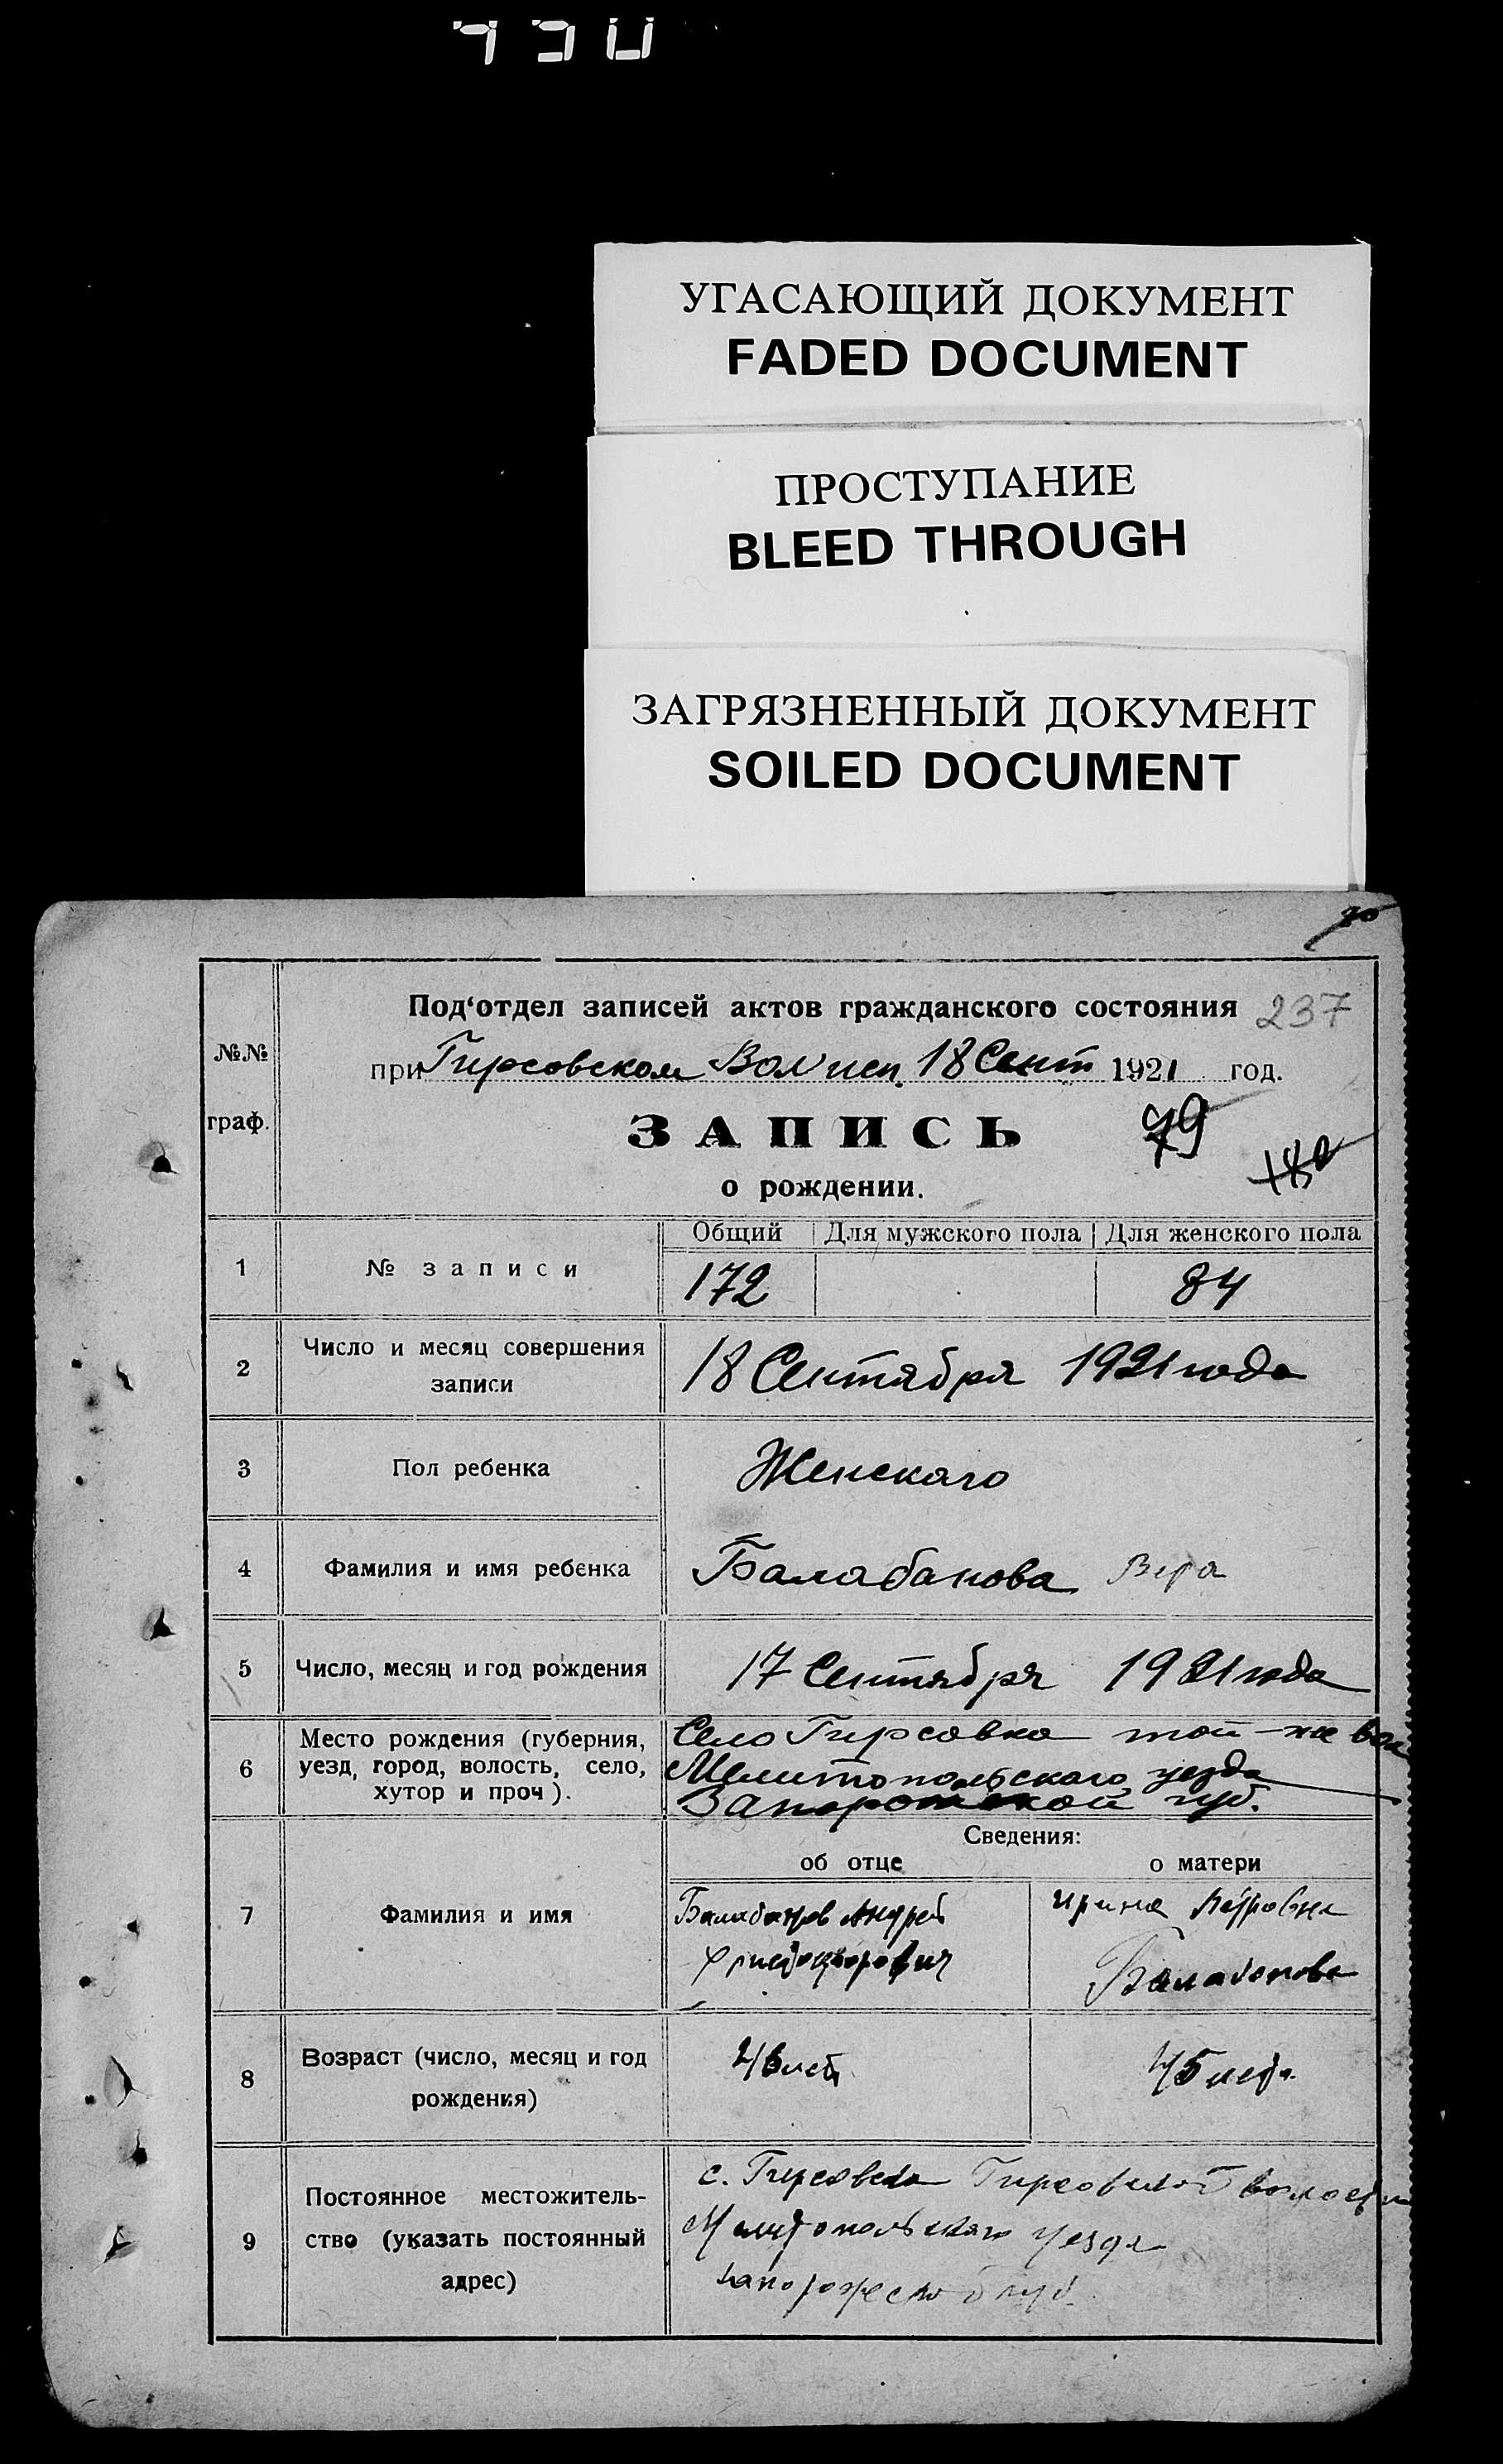 УГАСАЮЩИЙ ДОКУМЕНТ
FADED DOCUMENT
ПРОСТУПАНИЕ
BLEED THROUGH
ЗАГРЯЗНЕННЫЙ ДОКУМЕНТ
SOILED DOCUMENT
№№ граф.
Под‘отдел записей актов гражданского состояния 237
при Гирсовском Вол исп. 18 Сент 1921 год.
ЗАПИСЬ 79
о рождении.
Общий Для мужского пола Для женского пола
1 № записи 172 84
2 Число и месяц совершения записи 18 Сентября 1921 года
3 Пол ребенка Женскаго
4 Фамилия и имя ребенка Балабанова Вера
5 Число, месяц и год рождения 17 Сентября 1921 года
6 Место рождения (губерния, уезд, город, волость, село, хутор и проч).
Село Гирсовка той-же вол
Мелитопольскаго уезда
Запорожской губ.
Сведения:
об отце о матери
7 Фамилия и имя
Балабанов Андрей Ирина Петровна
Христофорович Балабанова
8 Возраст (число, месяц и год рождения) лет 45 лет
9 Постоянное местожительство (указать постоянный адрес)
с. Гирсовка Гирсовской волости
Мелитопольскаго уезда
Запорожской губ.